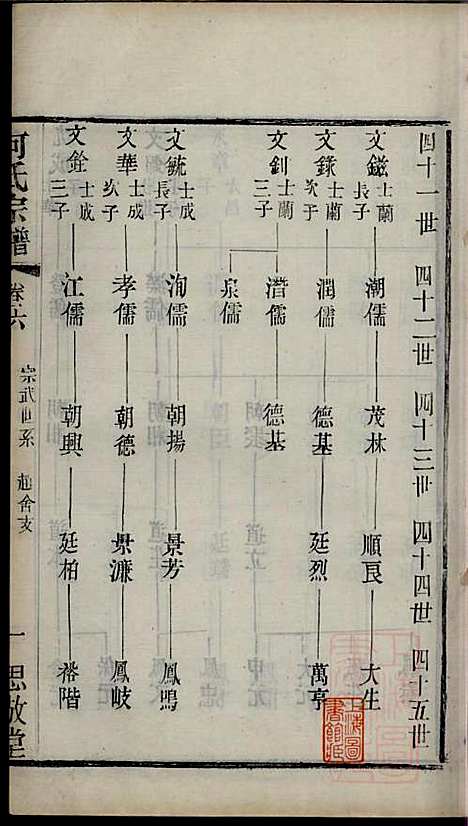 四十一世 四十二世 四十三世 四十四世 四十五世
文鎡 士蘭長子 潮儒 茂林 順良 大生
文錸 士蘭次子 潤儒 德基 廷烈 萬亨
文釗 士蘭三子 潛儒 德基
泉儒
文毓 士成長子 洵儒 朝揚 景芳 鳳鳴
文華 士成次子 孝儒 朝德 景濂 鳳岐
文銓 士成三子 江儒 朝興 廷柏 裕階
何氏宗譜 卷六 宗武世系 趙舍支 一 思敬堂
上海圖書館藏